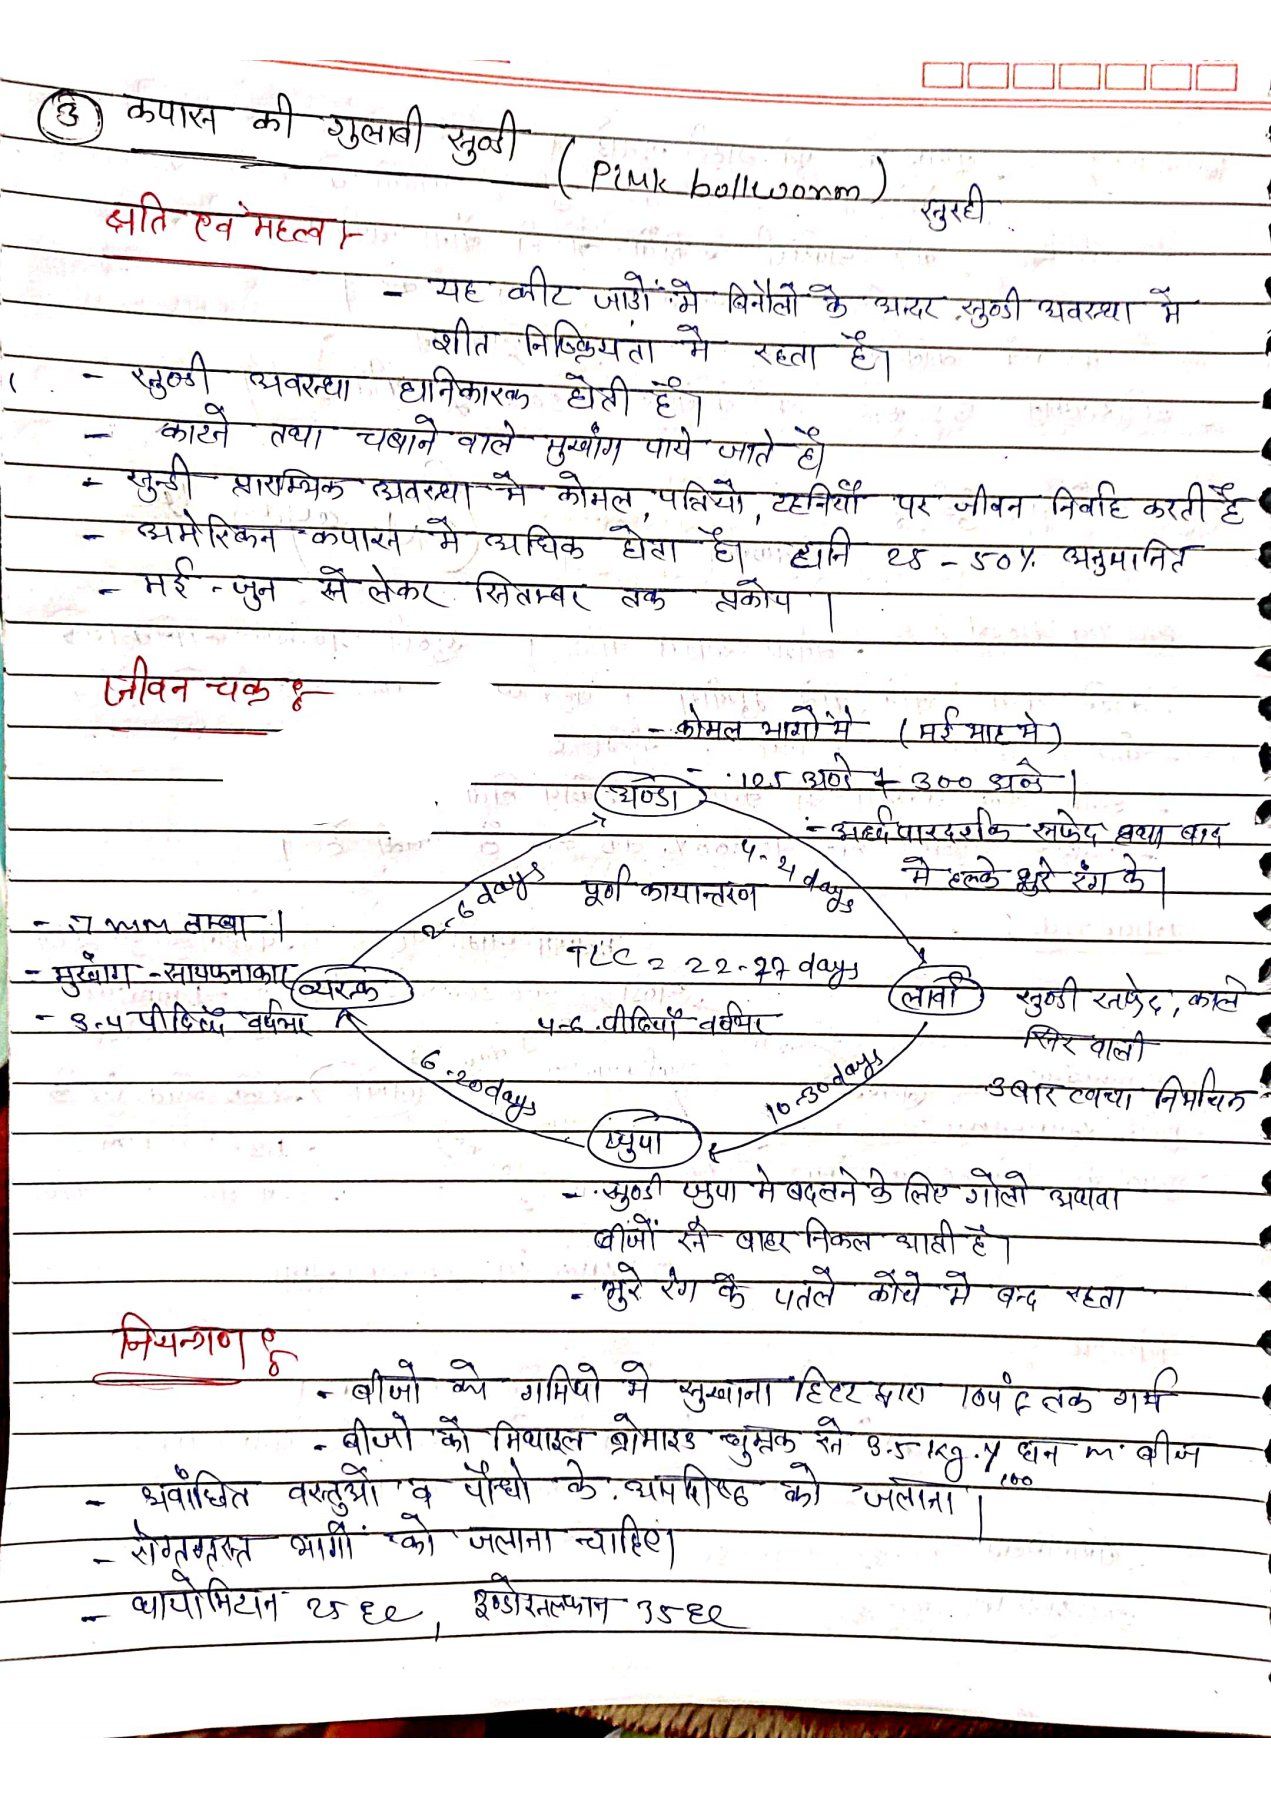 ③ कपास की गुलाबी सुण्डी (Pink bollworm)
क्षति एवं महत्व :-
- यह कीट जाडों में बिनौलों के अन्दर सुण्डी अवस्था में
शीत निष्क्रियता में रहता है।
- सुण्डी अवस्था हानिकारक होती है।
- काटने तथा चबाने वाले मुखांग पाये जाते है।
- सुन्डी प्रारम्भिक अवस्था में कोमल, पत्तियों, टहनियों पर जीवन निर्वाह करती है
- अमेरिकन कपास में अधिक होता है। हानि 25-50% अनुमानित
- मई-जुन से लेकर सितम्बर तक प्रकोप।
जीवन चक्र :-
- कोमल भागों में (मई माह में)
- 125 अण्डे 300 अण्डे।
अण्डा
- अर्द्धपारदर्शक सफेद तथा बाद
में हल्के भुरे रंग के।
2-6 days
पूर्ण कायान्तरण
4-21 days
- 7 mm लम्बा।
TLC = 22-77 days
- मुखांग - सायफनाकार
व्यस्क
लार्वा
सुण्डी सफेद, काले
- 3-4 पीढियाँ वर्षभर
4-6 पीढियाँ वर्षभर
सिर वाली
6-20 days
10-30 days
3 बार त्वचा निर्मोचन
प्युपा
- सुण्डी प्युपा में बदलने के लिए गोलो अथवा
बीजों से बाहर निकल आती है।
- भुरे रंग के पतले कोये में बन्द रहता
नियन्त्रण :-
- बीजो को गर्मियो में सुखाना हिटर द्वारा तक गर्म
- बीजो को मिथाइल ब्रोमाइड धुम्रक से 3.5 kg. घन m. बीज
100
- अवांछित वस्तुओं व पौधो के अपशिष्ठ को जलाना।
- रोगग्रस्त भागों को जलाना चाहिए।
- थायोमिटान 25 EC, इण्डोसल्फान 35 EC